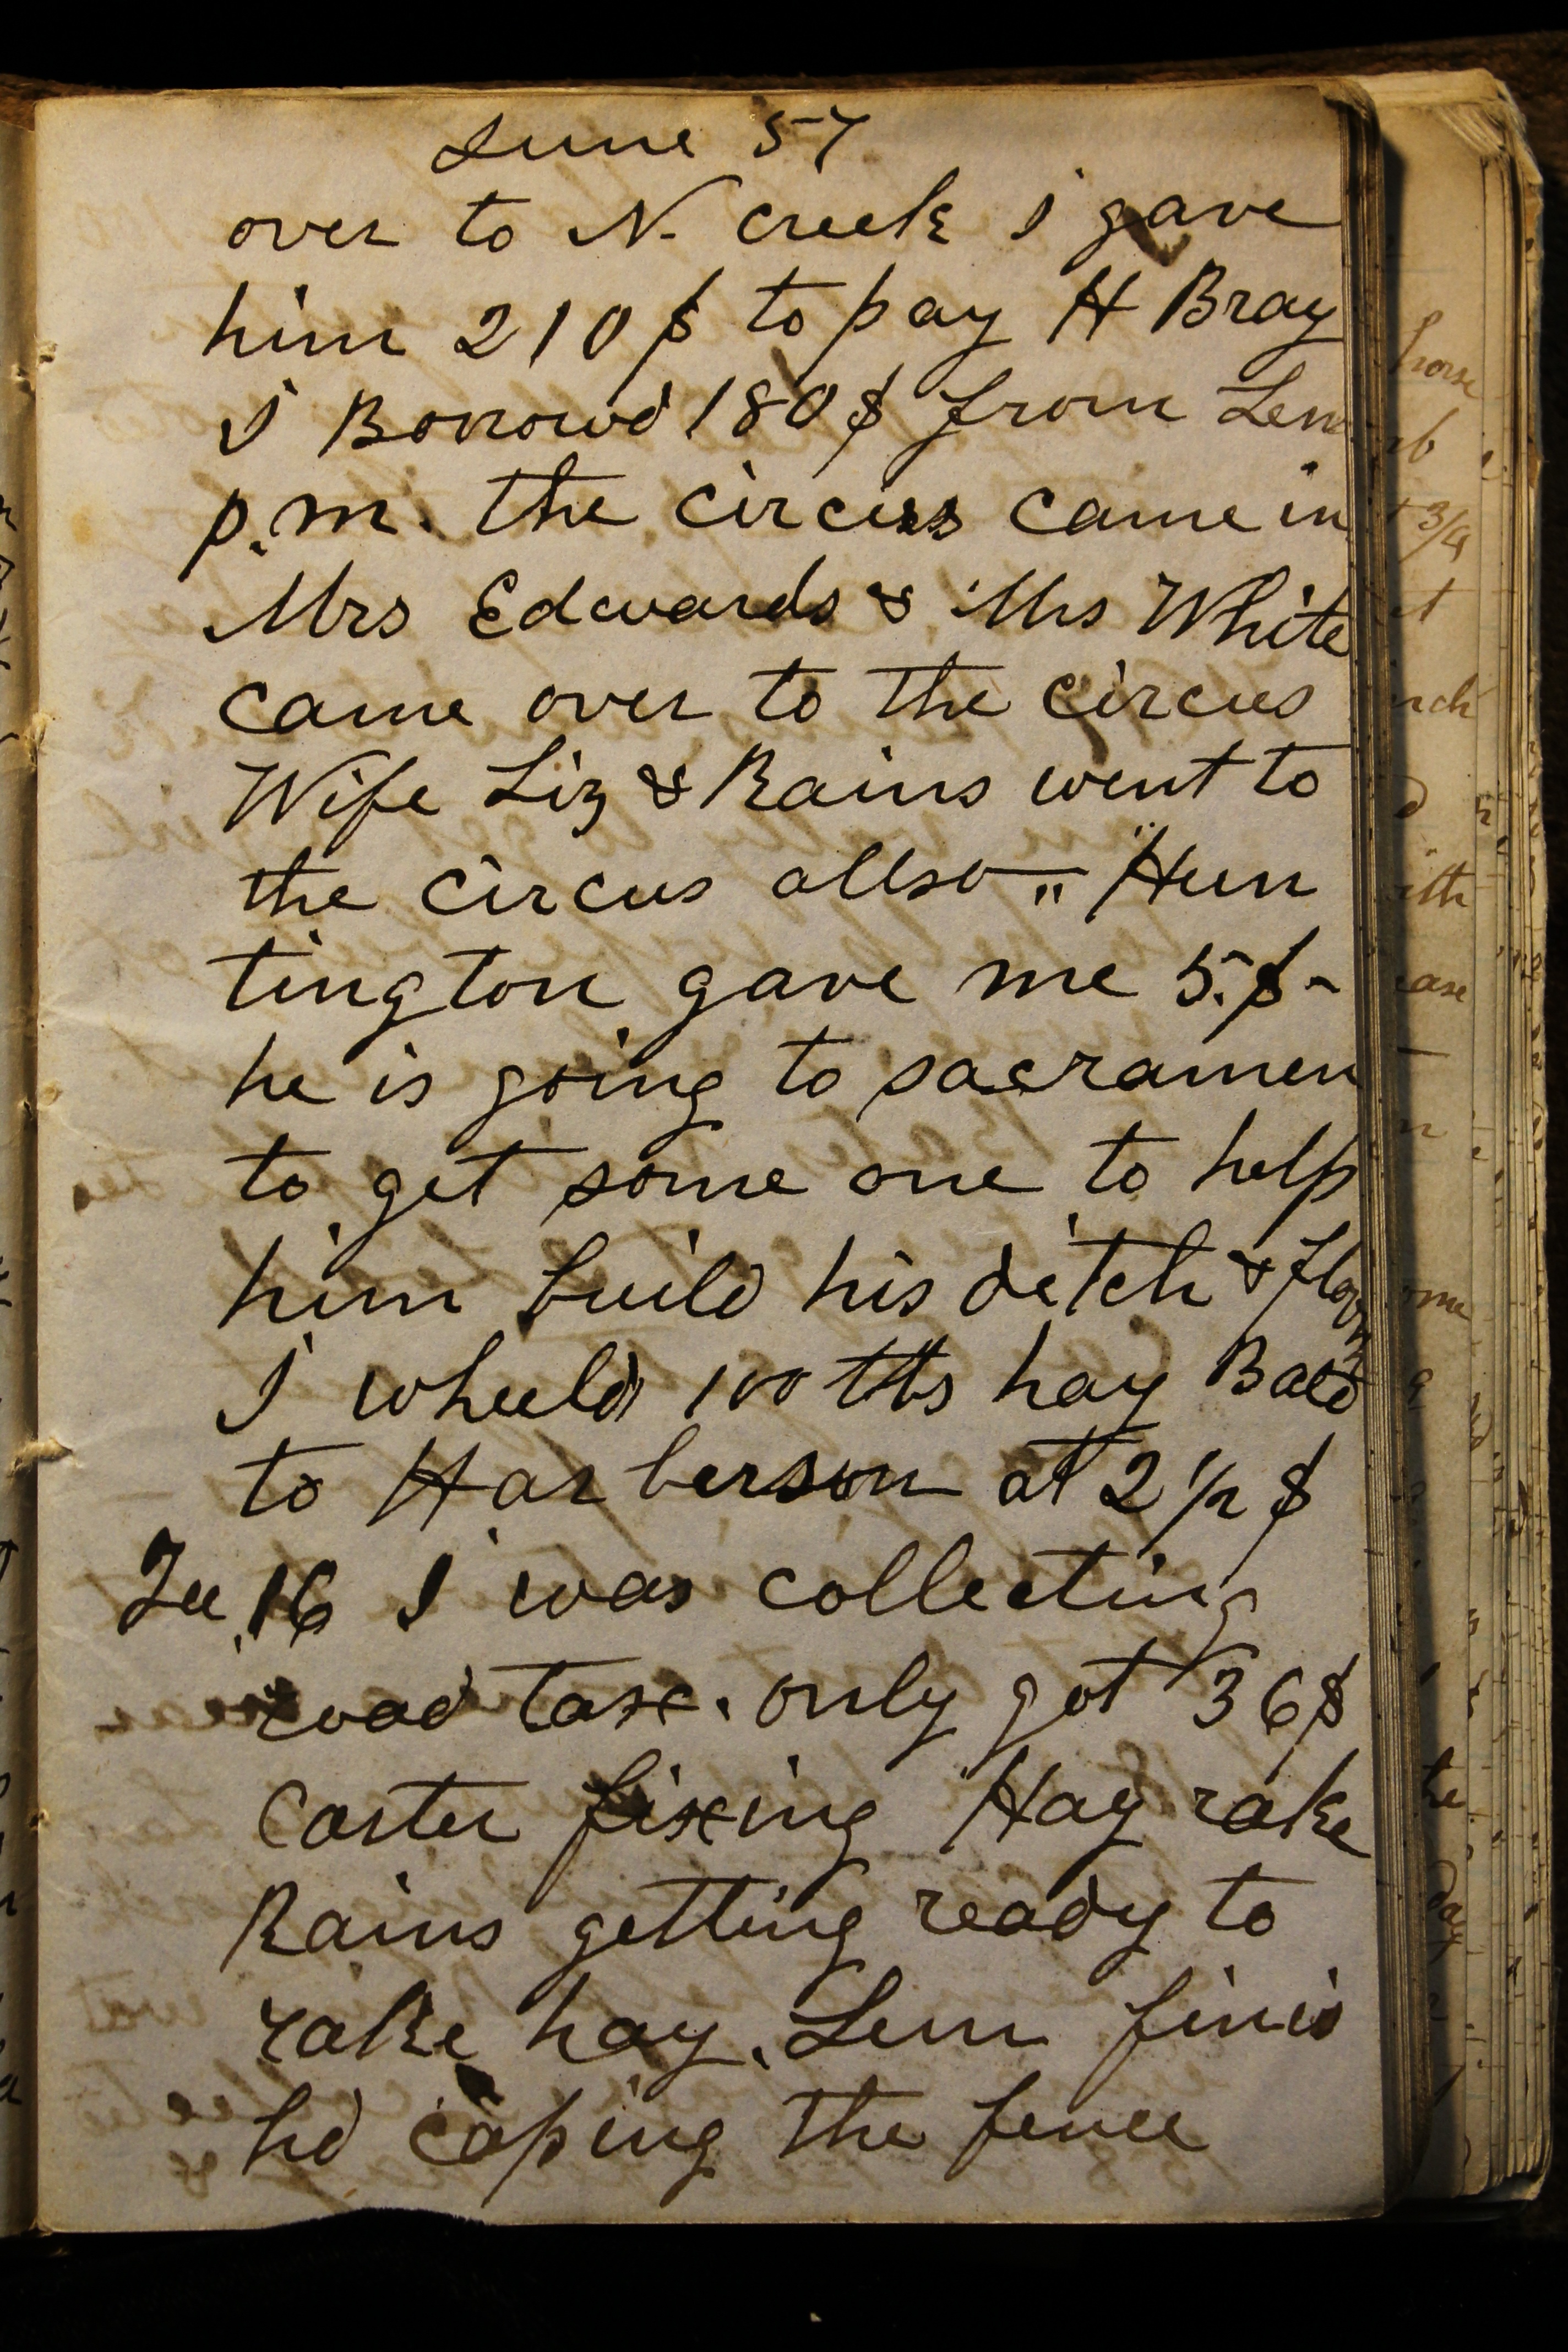 June 57
over to N. creek I gave
him 210$ to pay H Bray
I Borrowd 180$ from Lem
p.m. the circuss came in
Mrs Edwards & Mrs White
came over to the circus
Wife Liz & Rains went to
the circus allso — " Hun
tington gave me 5.$ -
he is going to sacramen
to get some one to help
him build his ditch &
I wheeld 100 hay Bald
to Harberson at 2 1/2 $
Tu, 16 I was collecting
road tax. only got 36$
Carter fixing Hay rake
Rains getting ready to
rake hay. Lem finis
hd caping the fence